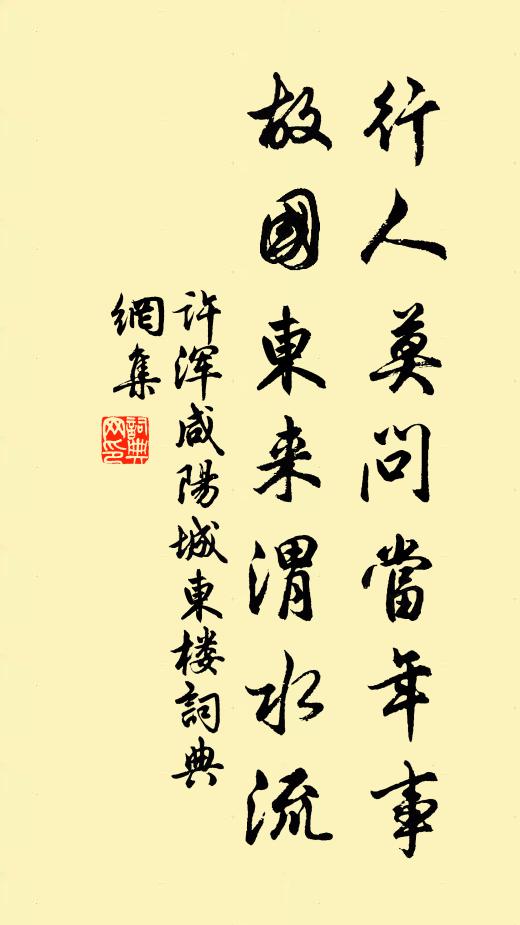 行人莫問當年事
故國東来渭水流
许浑咸陽城東楼詞典
網集
詞典
网印